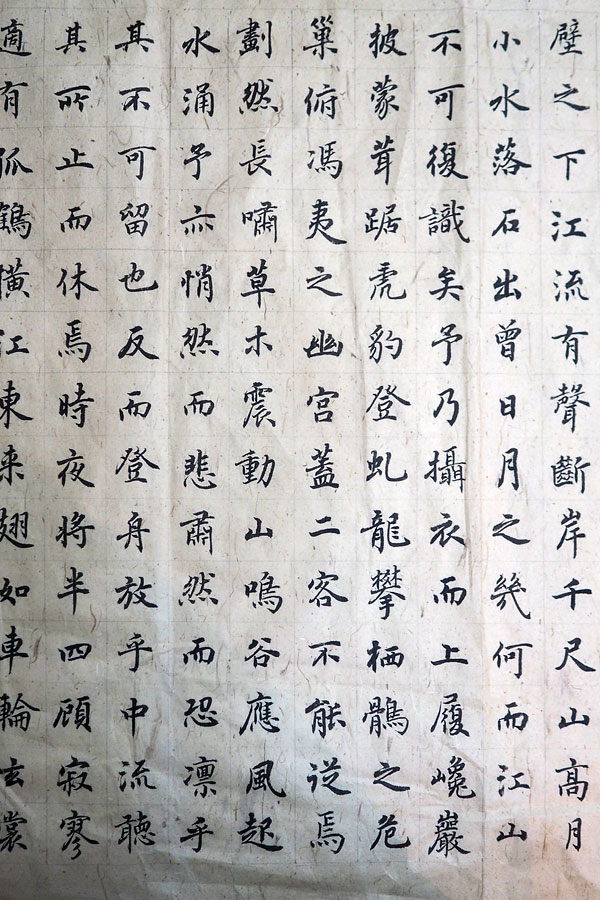 壁之下江流有聲斷岸千尺山高月
小水落石出曾日月之幾何而江山
不可復識矣予乃攝衣而上履巉巖
披蒙茸踞虎豹登虬龍攀栖鶻之危
巢俯馮夷之幽宮蓋二客不能從焉
劃然長嘯草木震動山鳴谷應風起
水涌予亦悄然而悲肅然而恐凛乎
其不可留也反而登舟放乎中流聽
其所止而休焉時夜將半四顧寂寥
適有孤鶴橫江東来翅如車輪玄裳